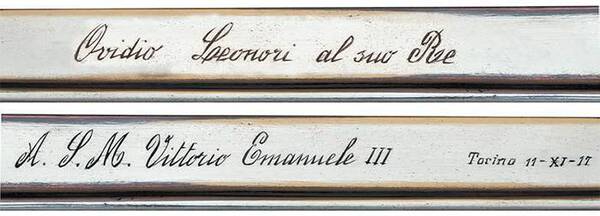 Ovidio Leonori al suo Re
A. S. M. Vittorio Emanuele III Torino 11-XI-17